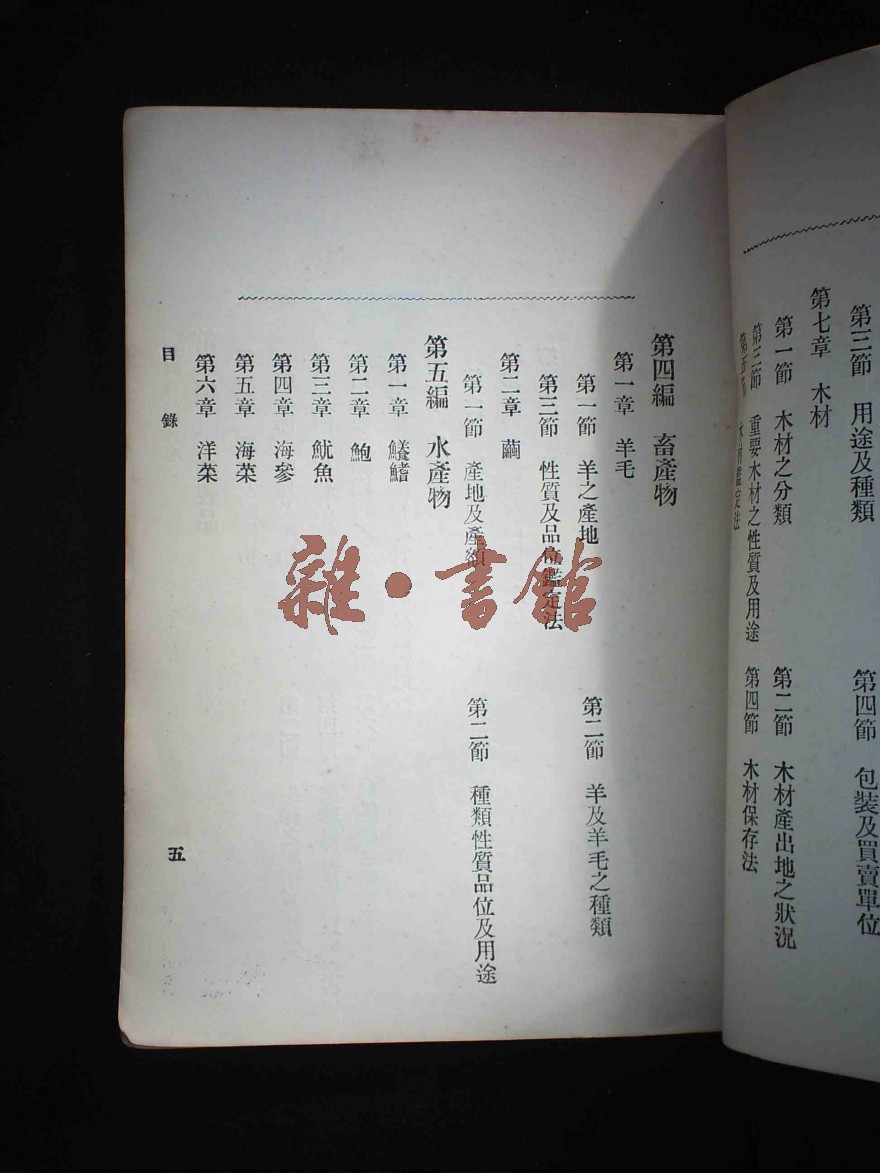 第三節　用途及種類　第四節　包装及買賣單位
第七章　木材
第一節　木材之分類　第二節　木材產出地之狀況
第三節　重要木材之性質及用途　第四節　木材保存法
第五節　木材鑑定法
第四編　畜產物
第一章　羊毛
第一節　羊之產地　第二節　羊及羊毛之種類
第三節　性質及品位鑑定法
第二章　繭
第一節　產地及產額　第二節　種類性質品位及用途
第五編　水產物
第一章　鱶鰭
第二章　鮑
第三章　魷魚
第四章　海參
第五章　海菜
第六章　洋菜
目錄　五
雜·書館